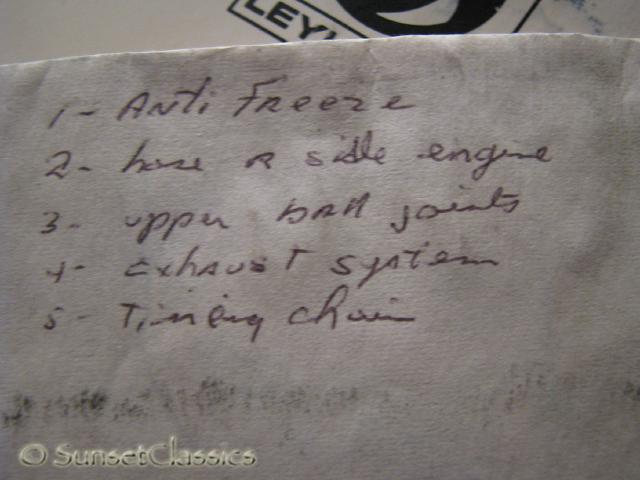 LEYL
1 - Anti Freeze
2 - hose R side engine
3 - upper ball joints
4 - exhaust system
5 - Timing chain
© SunsetClassics